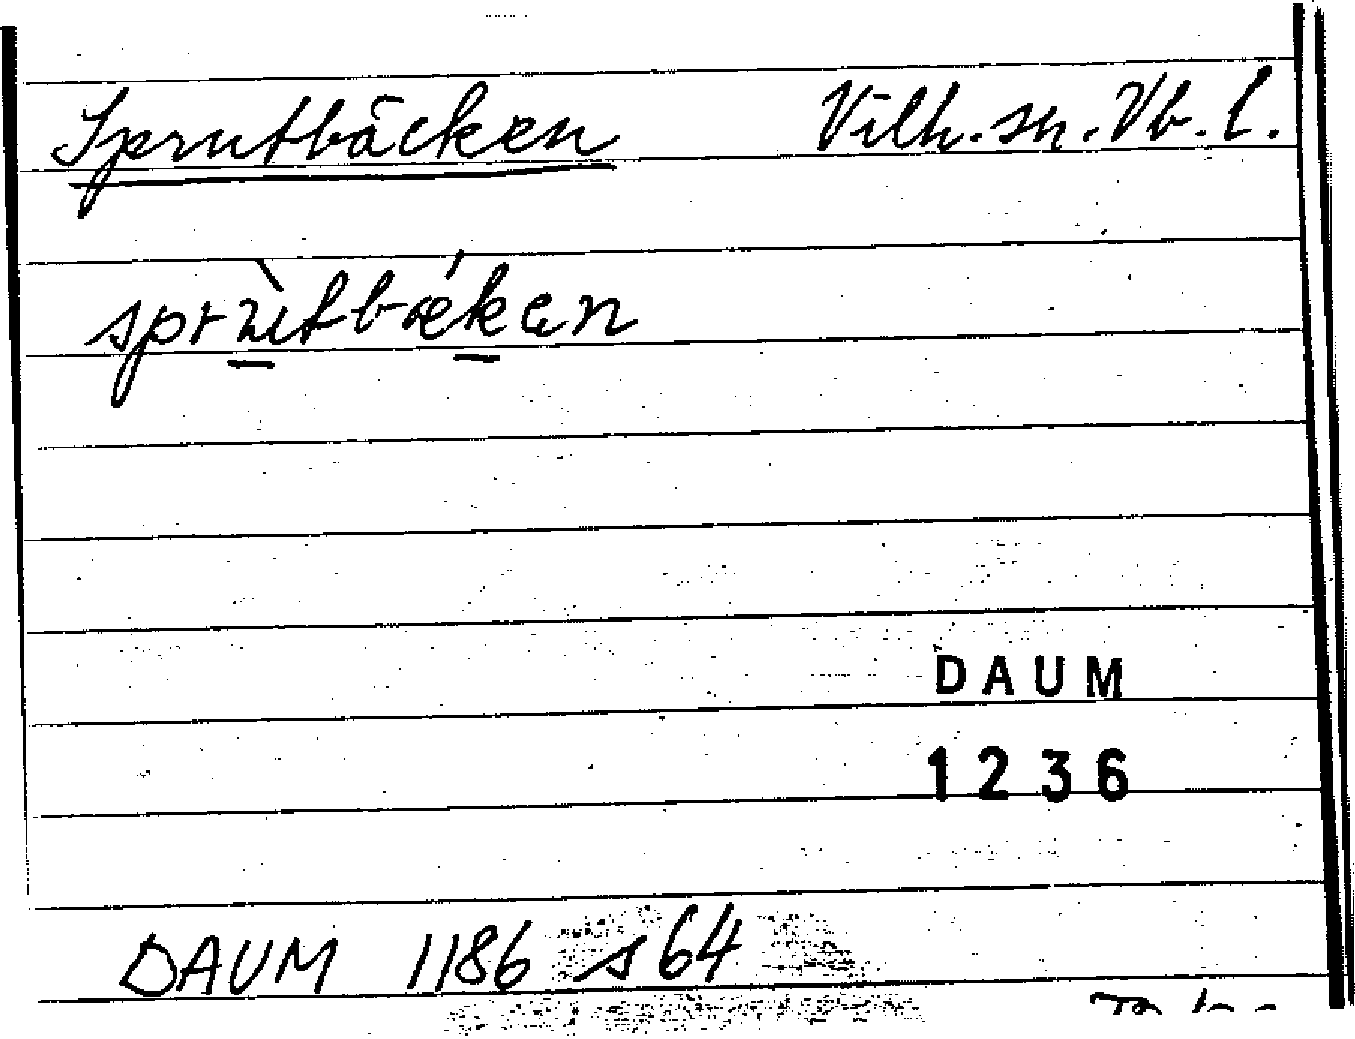 Sprutbäcken Vilh. sn. Vb. l.
sprùtbǽkɐn
DAUM
1236
DAUM 1186 s 64